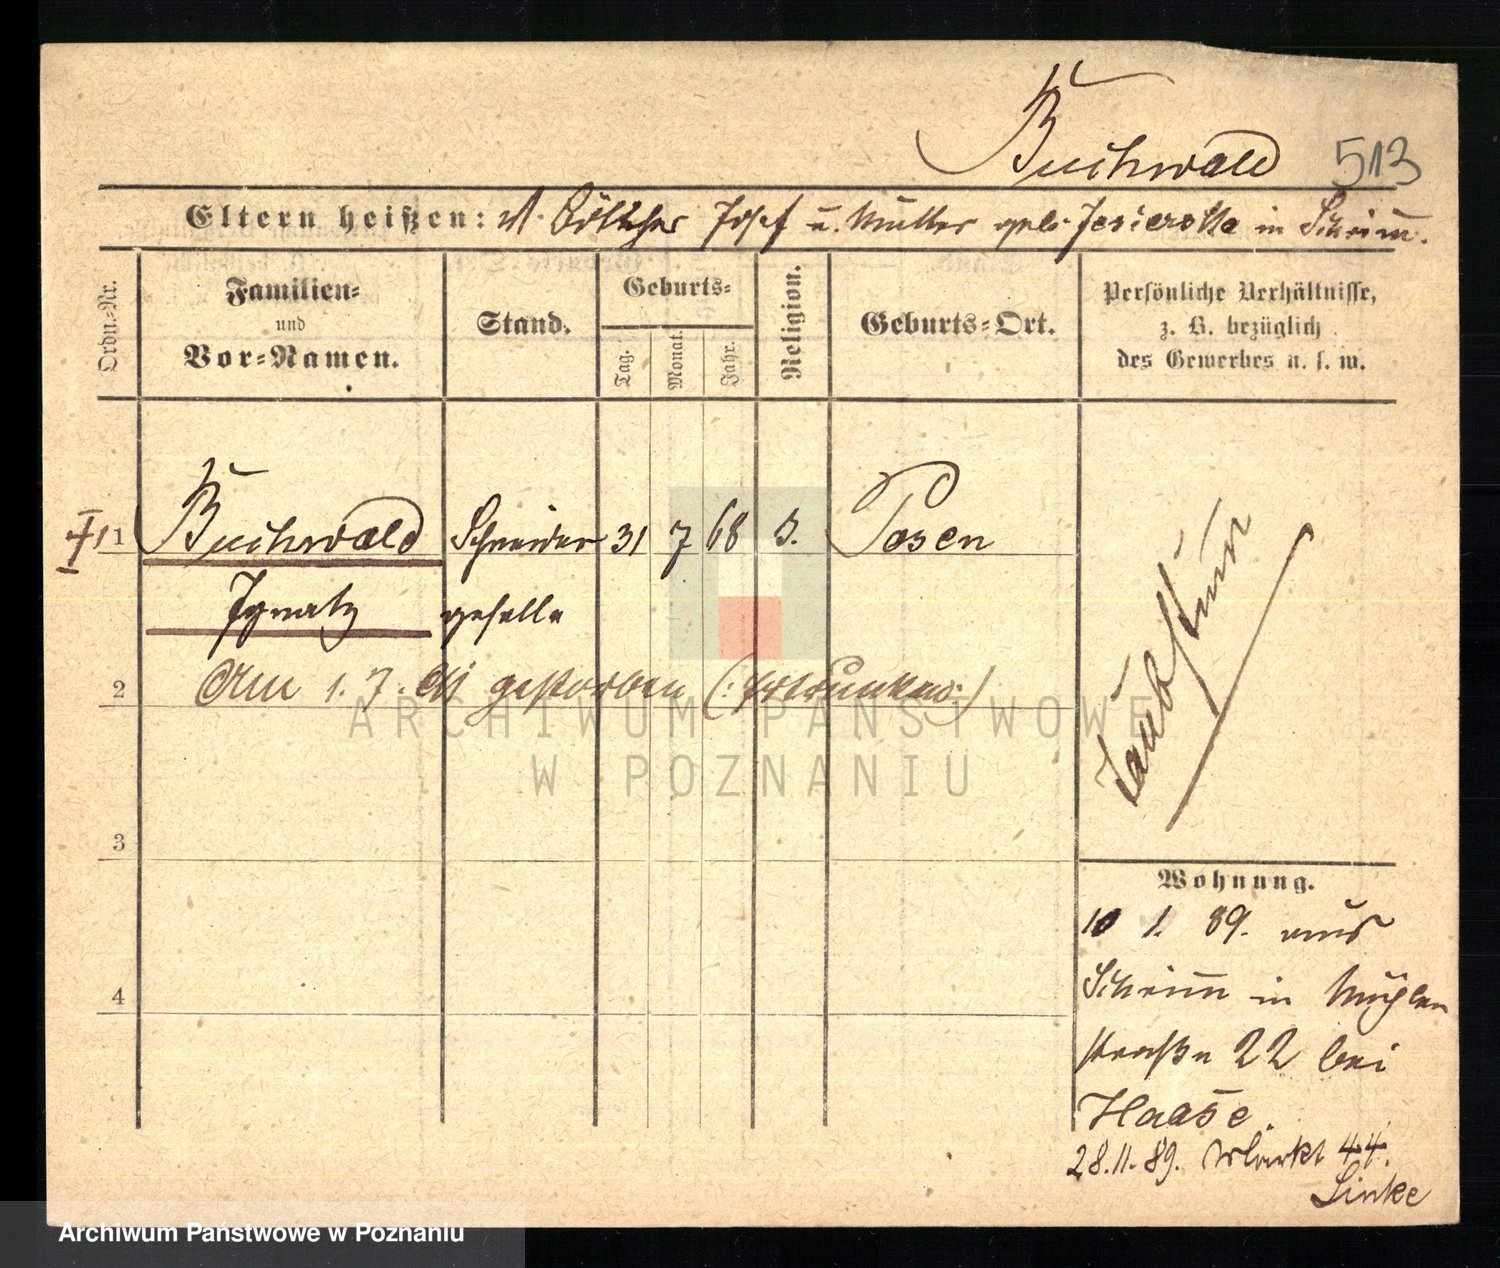 Buchwald
513
Eltern heißen: Böttcher Josef u. Mutter geb. Jesierska in Schrim.
Ordn.-Nr.
Familien-
und
Vor-Namen.
Stand.
Geburts-
Tag.
Monat.
Jahr.
Religion.
Geburts-Ort.
Persönliche Verhältnisse,
z. B. bezüglich
des Gewerbes u. s. w.
1 Buchwald Schneider 31 7 68 Posen
Ignatz geselle
2 Am 1. 7. gestorben (: ertrunken :)
taubstumm
3
4
Wohnung.
10 1. 89. aus
Schrimm in Mühlen
straße 22 bei
Haase.
28.11.89. Markt 44.
Linke
ARCHIWUM PAŃSTWOWE
W POZNANIU
Archiwum Państwowe w Poznaniu